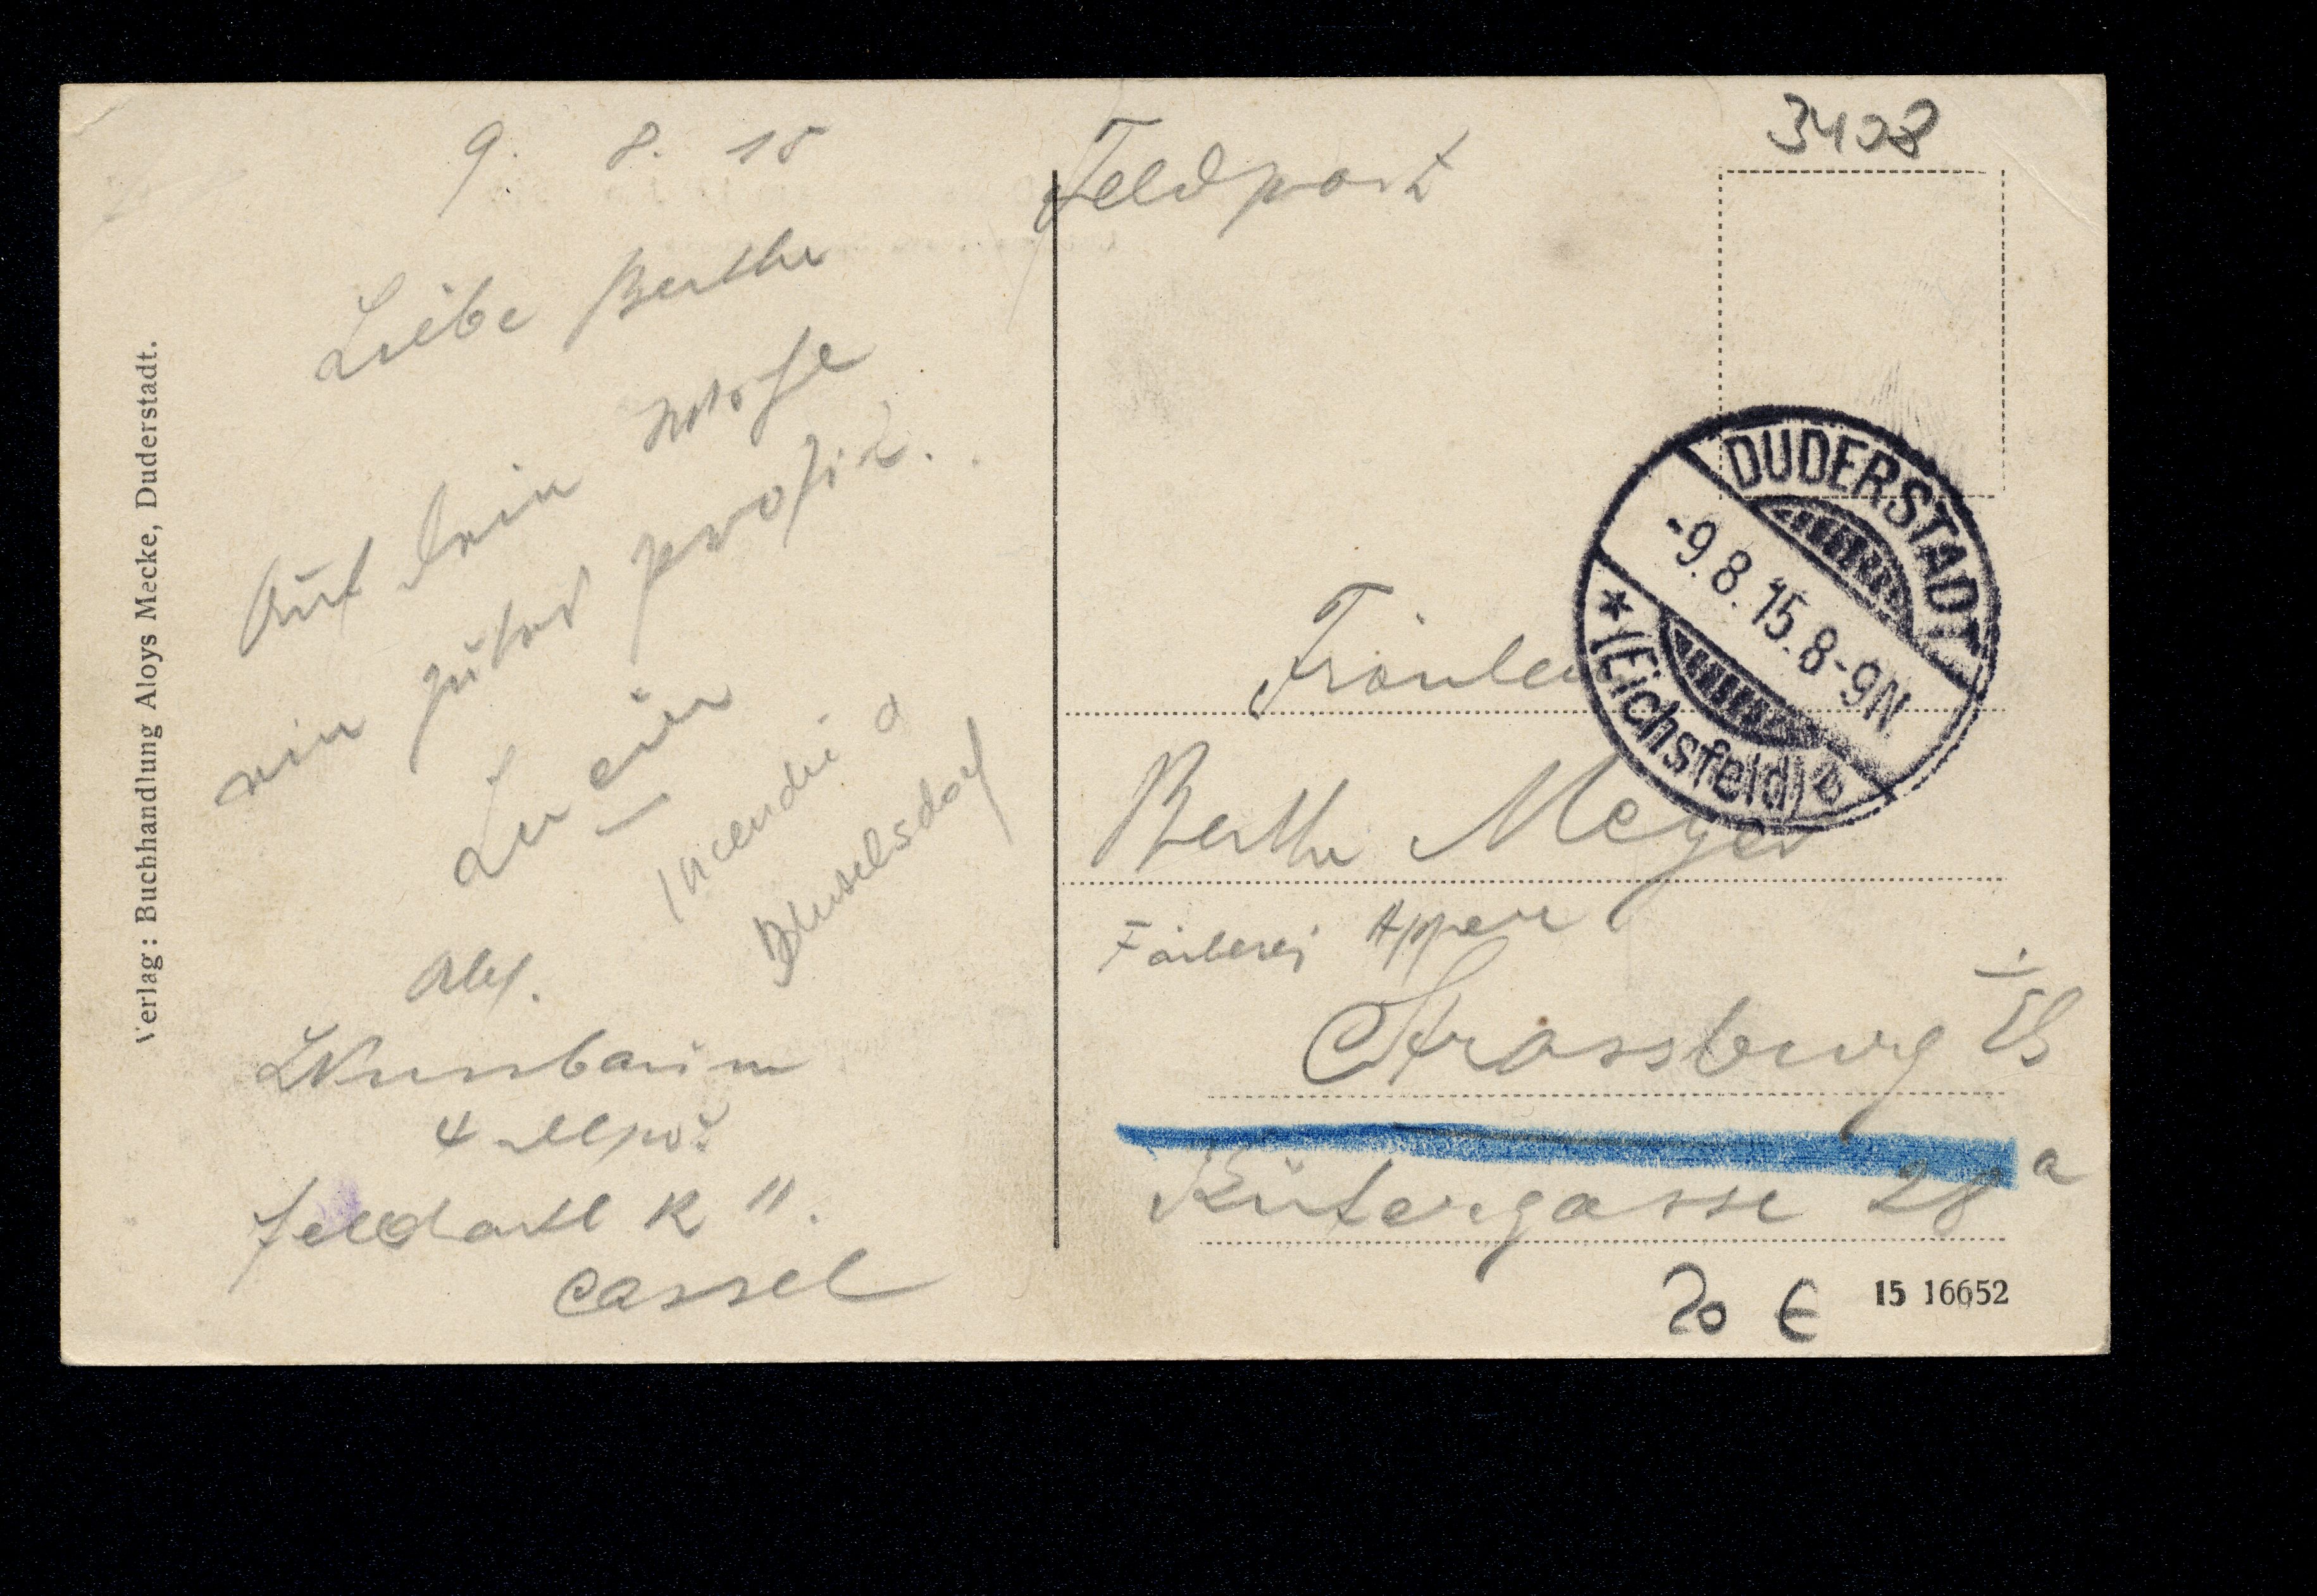 9. 8. 15
Liebe Berthe
Auf dein Wohle
ein gutes prosit.
Lucien
Incendie a
Abs.
LNussbaum
Feldartl R 11.
Cassel
Verlag: Buchhandlung Aloys Mecke, Duderstadt.
Feldpost
3408
DUDERSTADT
-9.8.15.8-9N
* (Eichsfeld) b
Fräulein
Berthe Meyer
Färberei Appell
Strassburg i Els
Küfergasse 28 a
20 €
15 16652